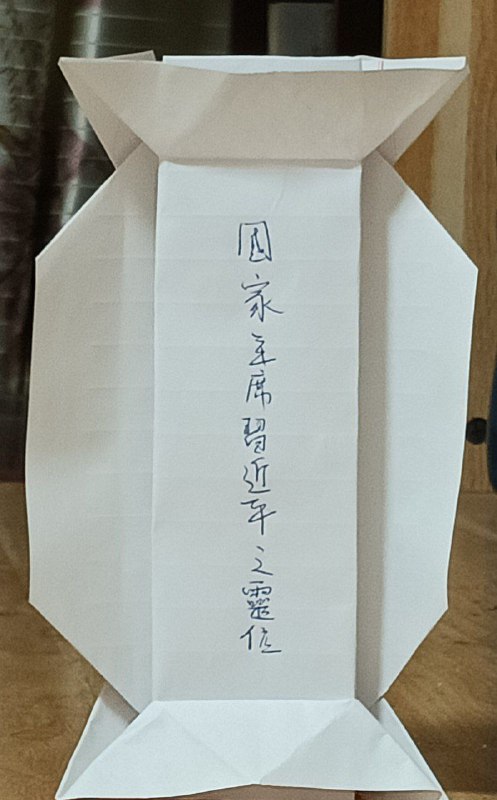 國家主席習近平之靈位